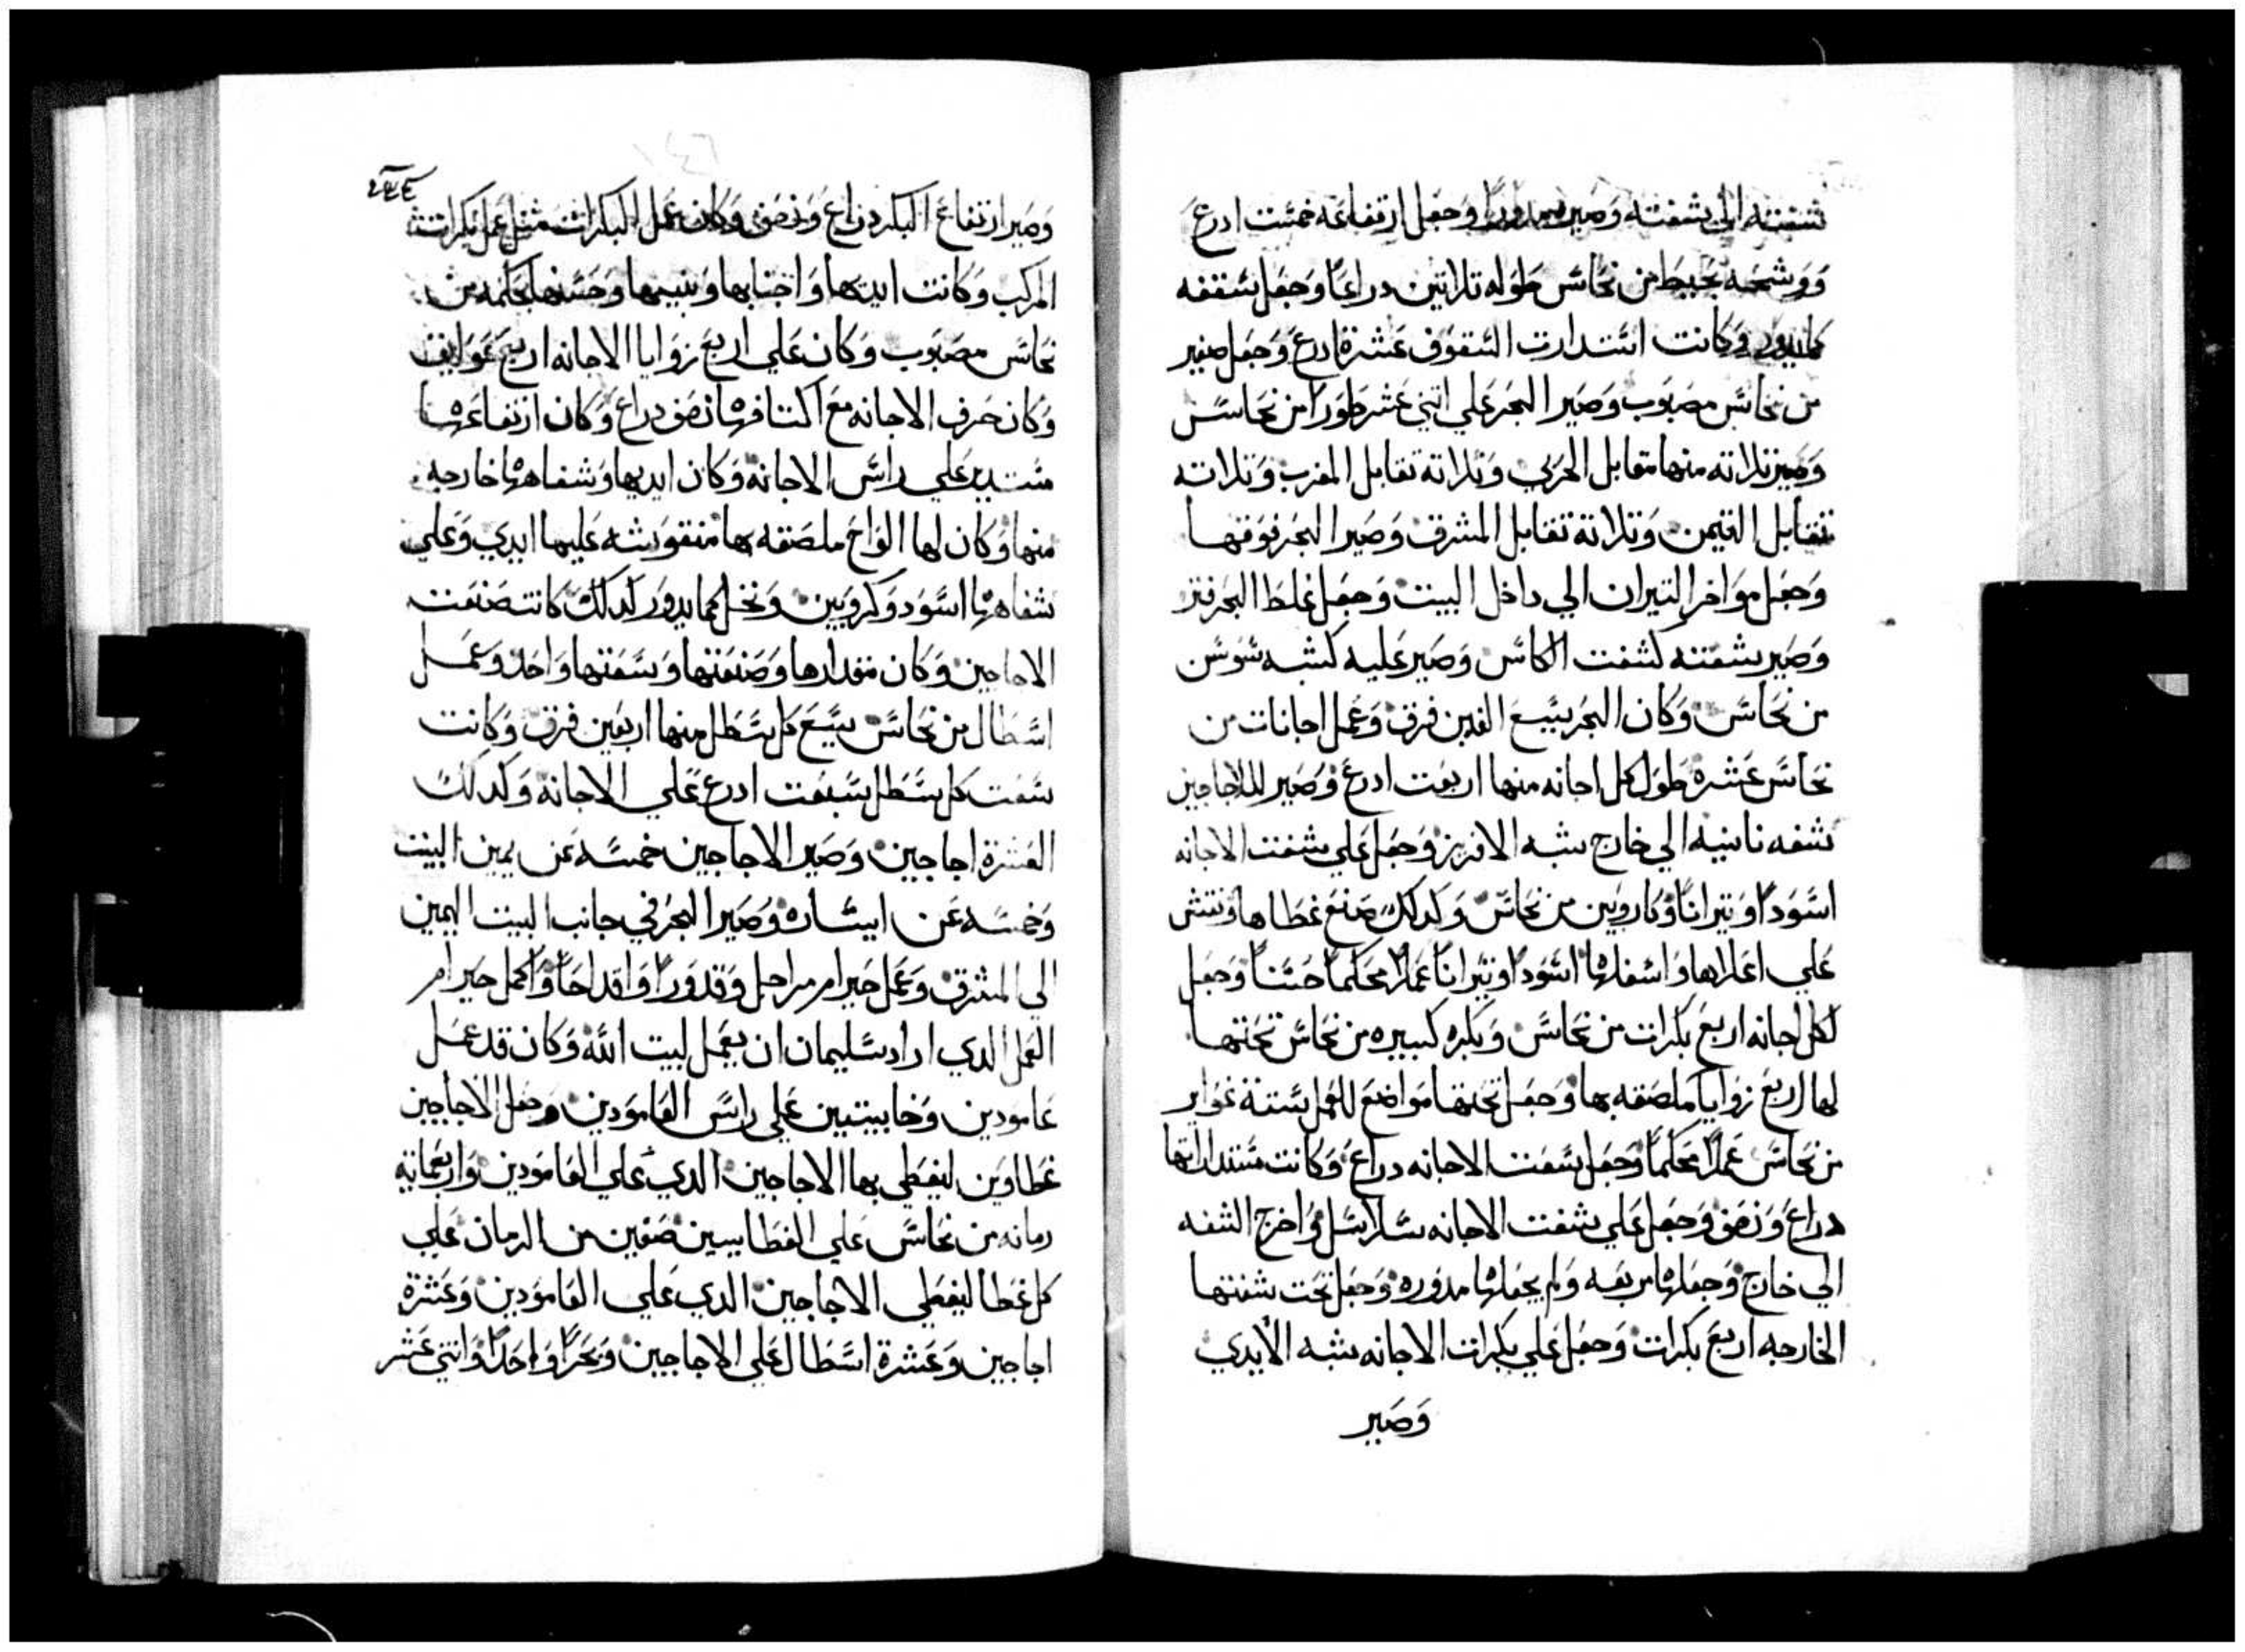 شفته الي شفته وصير مدورا وجعل ارتفاعه خمست ادرع
ووشحه بخيط من نحاس طوله تلاتين دراعا وجعل سقفه
كما يدور وكانت استدارت السقوف عشرة ادرع وجعل صفير
من نحاس مصبوب وصير البحر علي اتني عشر طورا من نحاس
وصير تلاته منها مقابل الحربي وتلاتة تقابل المغرب وتلاته
تقابل التيمن وتلاتة تقابل المشرق وصير البحر فوقها
وجعل مواخر التيران الي داخل البيت وجعل غلظ البحر فتر
وصير شفته كشفت الكاس وصير عليه كشبه سوسن
من نحاس وكان البحر يسع الفين فرق وعمل اجانات من
نحاس عشره طول كل اجانه منها اربعت ادرع وصير للاجاجين
شفه تانيه الي خارج شبه الافريز وجعل علي شفت الاجانه
اسودا وتيرانا وكاروبين من نحاس وكدلك صنع غطاها ونقش
علي اعلاها واسفلها اسودا وتيرانا عملا محكما حسنا وجعل
لكل اجانه اربع بكرات من نحاس وبكره كبيره من نحاس تحتها
لها اربع زوايا ملصقه بها وجعل تحتها مواضع للغمل ستة غواير
من نحاس عملا محكما وجعل سعت الاجانه دراع وكانت مستدارتها
دراع ونصف وجعل علي شفت الاجانه سلاسل واخرج الشفه
الي خارج وجعلها مربعه ولم يجعلها مدوره وجعل تحت شفتها
الخارجه اربع بكرات وجعل علي بكرات الاجانه شبه الايدي
وصير
وصير ارتفاع البكره دراع ونصف وكان عمل البكرات مثل عمل بكرات
المركب وكانت ايديها واجنابها وحسنها محكمه من
نحاس مصبوب وكان علي اربع زوايا الاجانه اربع عواتف
وكان حرف الاجانه مع اكتافها نصف دراع وكان ارتفاعها
مستدير علي راس الاجانه وكان ايديها وشفاهها خارجه
منها وكان لها الواح ملصقه بها منقوشه عليها ايدي وعلي
شفاهها اسود وكروبين ونخل كما يدور كدلك كانت صنعت
الاجاجين وكان مقدارها وصنعتها وسعتها واحد وعمل
اسطال من نحاس يسع كل سطل منها اربعين فرق وكانت
سعت كل سطل سبعت ادرع علي الاجانة وكدلك
العشرة اجاجين وصير الاجاجين خمسه عن يمين البيت
وخمسه عن ايساره وصير البحر في جانب البيت اليمين
الي المشرق وعمل حيرام مراجل وقدورا واقداحا واكمل حيرام
العمل الدي اراد سليمان ان يعمل لبيت الله وكان قد عمل
عامودين وخابيتين علي راس العامودين وجعل الاجاجين
غطاوين ليغطي بها الاجاجين الدي علي العامودين واربعمايه
رمانه من نحاس علي الغطايين صفين من الرمان علي
كل غطا ليغطي الاجاجين الدي علي العامودين وعشرة
اجاجين وعشرة اسطال علي الاجاجين وبحرا واحدا واتني عشر